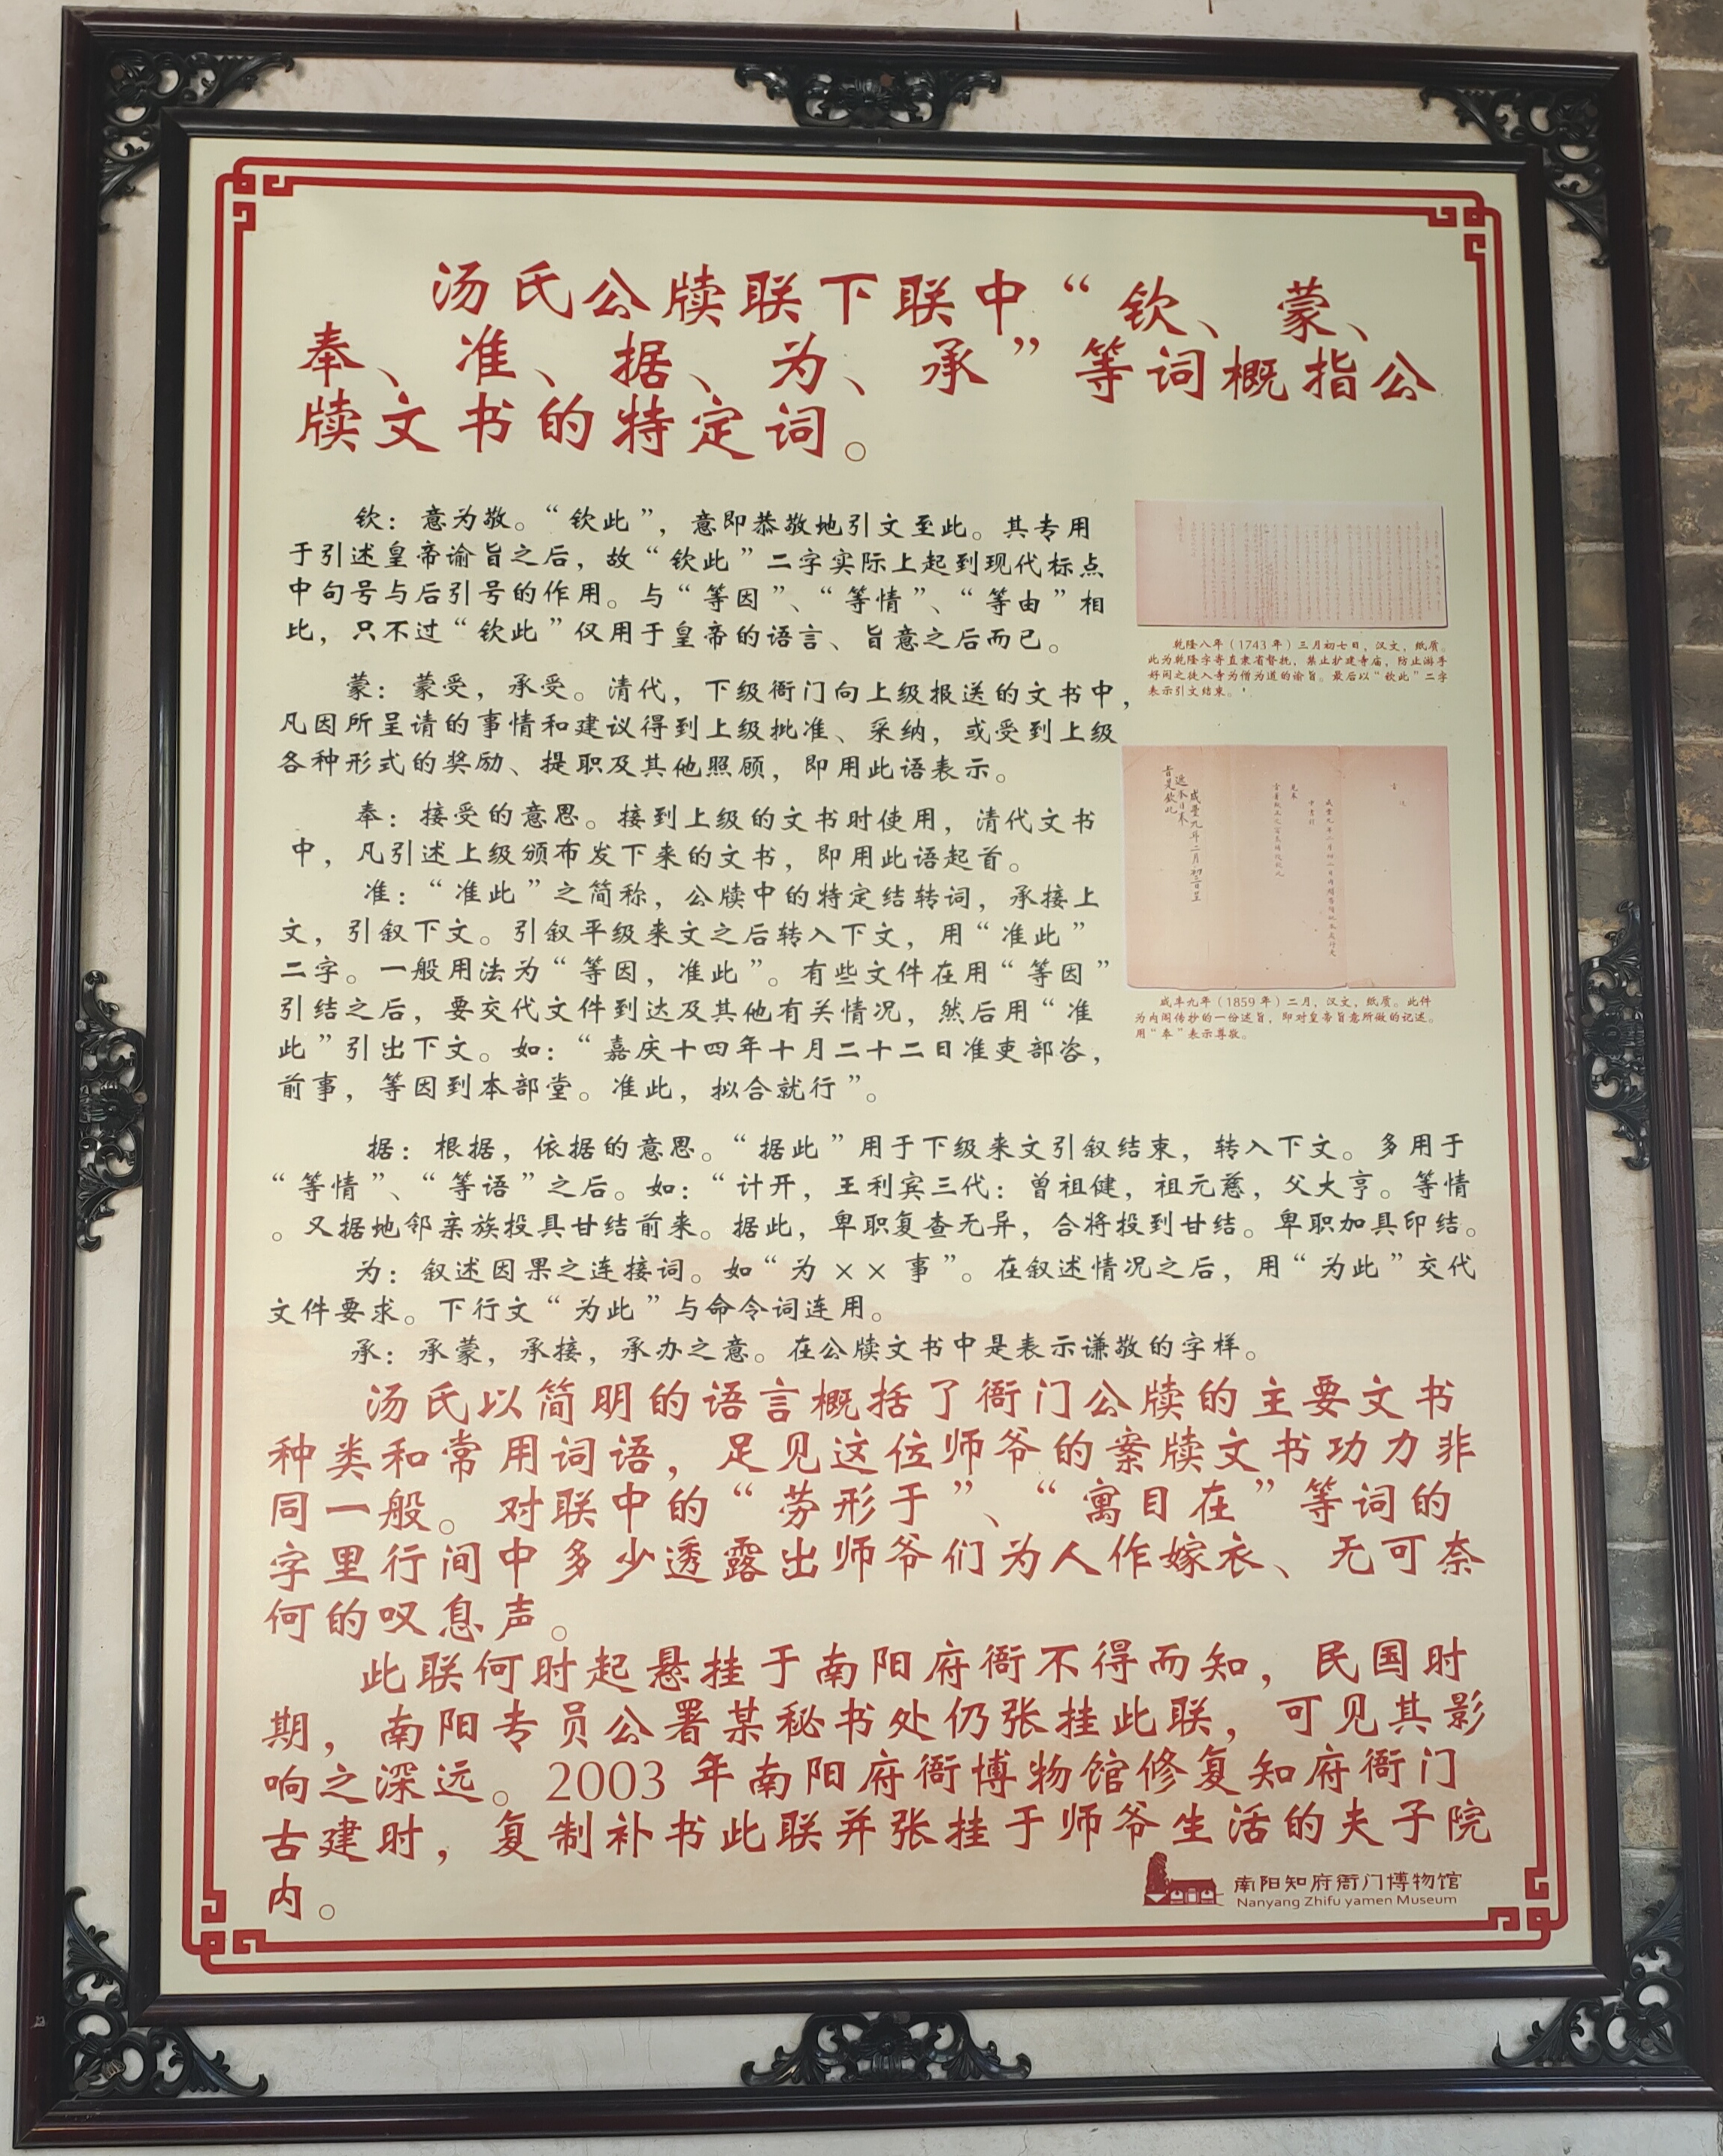 汤氏公牍联下联中“钦、蒙、
奉、准、据、为、承”等词概指公
牍文书的特定词。
钦：意为敬。“钦此”，意即恭敬地引文至此。其专用
于引述皇帝谕旨之后，故“钦此”二字实际上起到现代标点
中句号与后引号的作用。与“等因”、“等情”、“等由”相
比，只不过“钦此”仅用于皇帝的语言、旨意之后而已。
蒙：蒙受，承受。清代，下级衙门向上级报送的文书中，
凡因所呈请的事情和建议得到上级批准、采纳，或受到上级
各种形式的奖励、提职及其他照顾，即用此语表示。
奉：接受的意思。接到上级的文书时使用，清代文书
中，凡引述上级颁布发下来的文书，即用此语起首。
准：“准此”之简称，公牍中的特定结转词，承接上
文，引叙下文。引叙平级来文之后转入下文，用“准此”
二字。一般用法为“等因，准此”。有些文件在用“等因”
引结之后，要交代文件到达及其他有关情况，然后用“准
此”引出下文。如：“嘉庆十四年十月二十二日准吏部咨，
前事，等因到本部堂。准此，拟合就行”。
乾隆八年（1743 年）三月初七日，汉文，纸质。
此为乾隆字寄直隶省督抚，禁止扩建寺庙，防止游手
好闲之徒入寺为僧为道的谕旨。最后以“钦此”二字
表示引文结束。
咸丰九年二月初三日呈
递本日奉
旨是钦此
咸丰九年（1859 年）二月，汉文，纸质。此件
为内阁传抄的一份述旨，即对皇帝旨意所做的记述。
用“奉”表示尊敬。
据：根据，依据的意思。“据此”用于下级来文引叙结束，转入下文。多用于
“等情”、“等语”之后。如：“计开，王利宾三代：曾祖健，祖元慈，父大亨。等情
。又据地邻亲族投具甘结前来。据此，卑职复查无异，合将投到甘结。卑职加具印结。
为：叙述因果之连接词。如“为 ×× 事”。在叙述情况之后，用“为此”交代
文件要求。下行文“为此”与命令词连用。
承：承蒙，承接，承办之意。在公牍文书中是表示谦敬的字样。
汤氏以简明的语言概括了衙门公牍的主要文书
种类和常用词语，足见这位师爷的案牍文书功力非
同一般。对联中的“劳形于”、“寓目在”等词的
字里行间中多少透露出师爷们为人作嫁衣、无可奈
何的叹息声。
此联何时起悬挂于南阳府衙不得而知，民国时
期，南阳专员公署某秘书处仍张挂此联，可见其影
响之深远。2003 年南阳府衙博物馆修复知府衙门
古建时，复制补书此联并张挂于师爷生活的夫子院
内。
南阳知府衙门博物馆
Nanyang Zhifu yamen Museum